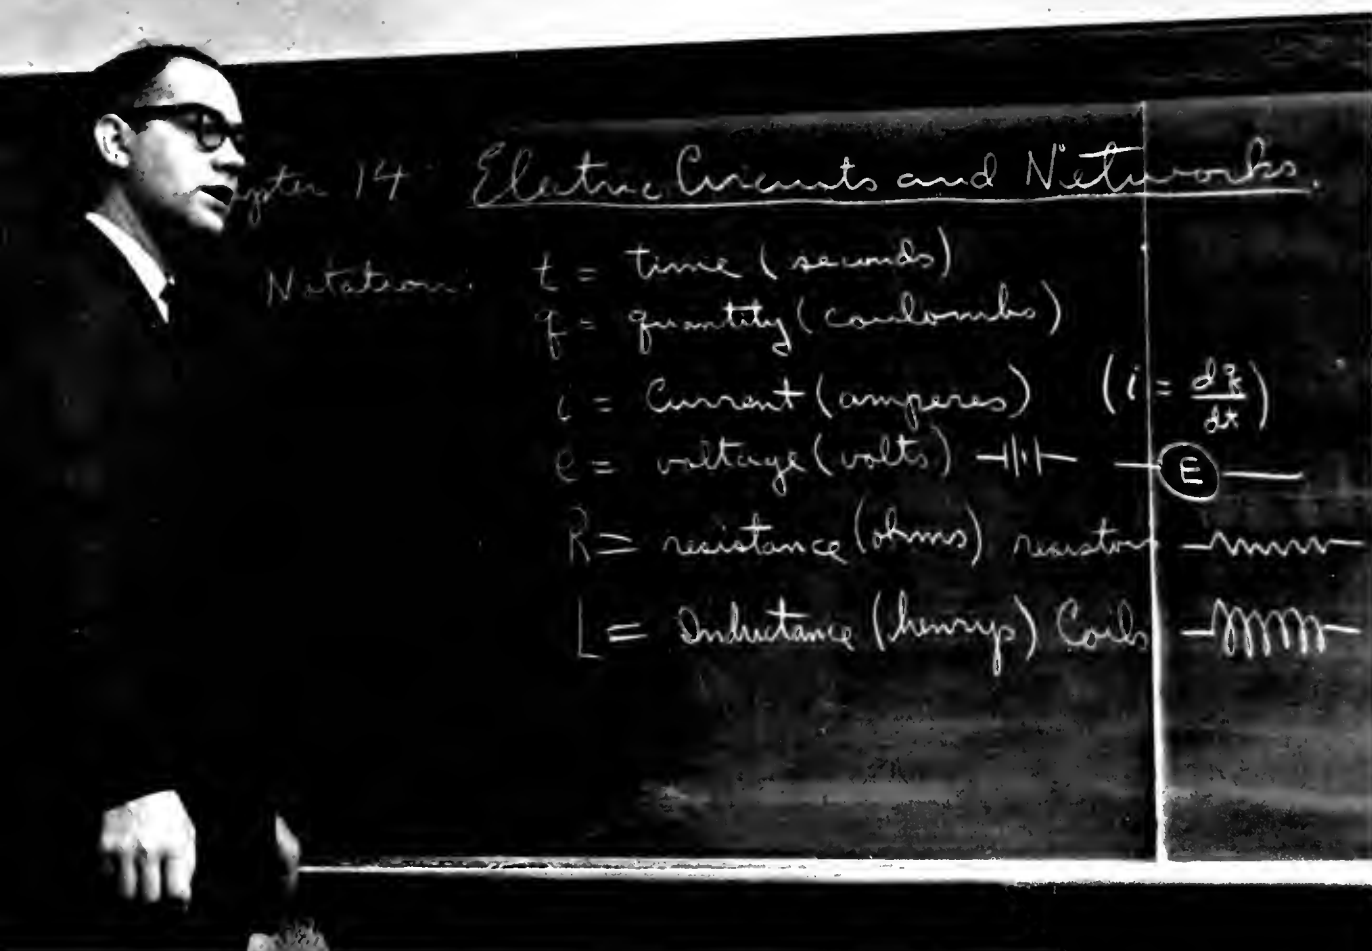 Chapter 14 Electric Circuits and Networks.
Notation: t = time (seconds)
q = quantity (coulombs)
i = Current (amperes) (i = dq/dt)
e = voltage (volts) E
R = resistance (ohms) resistors
L = Inductance (henrys) Coils